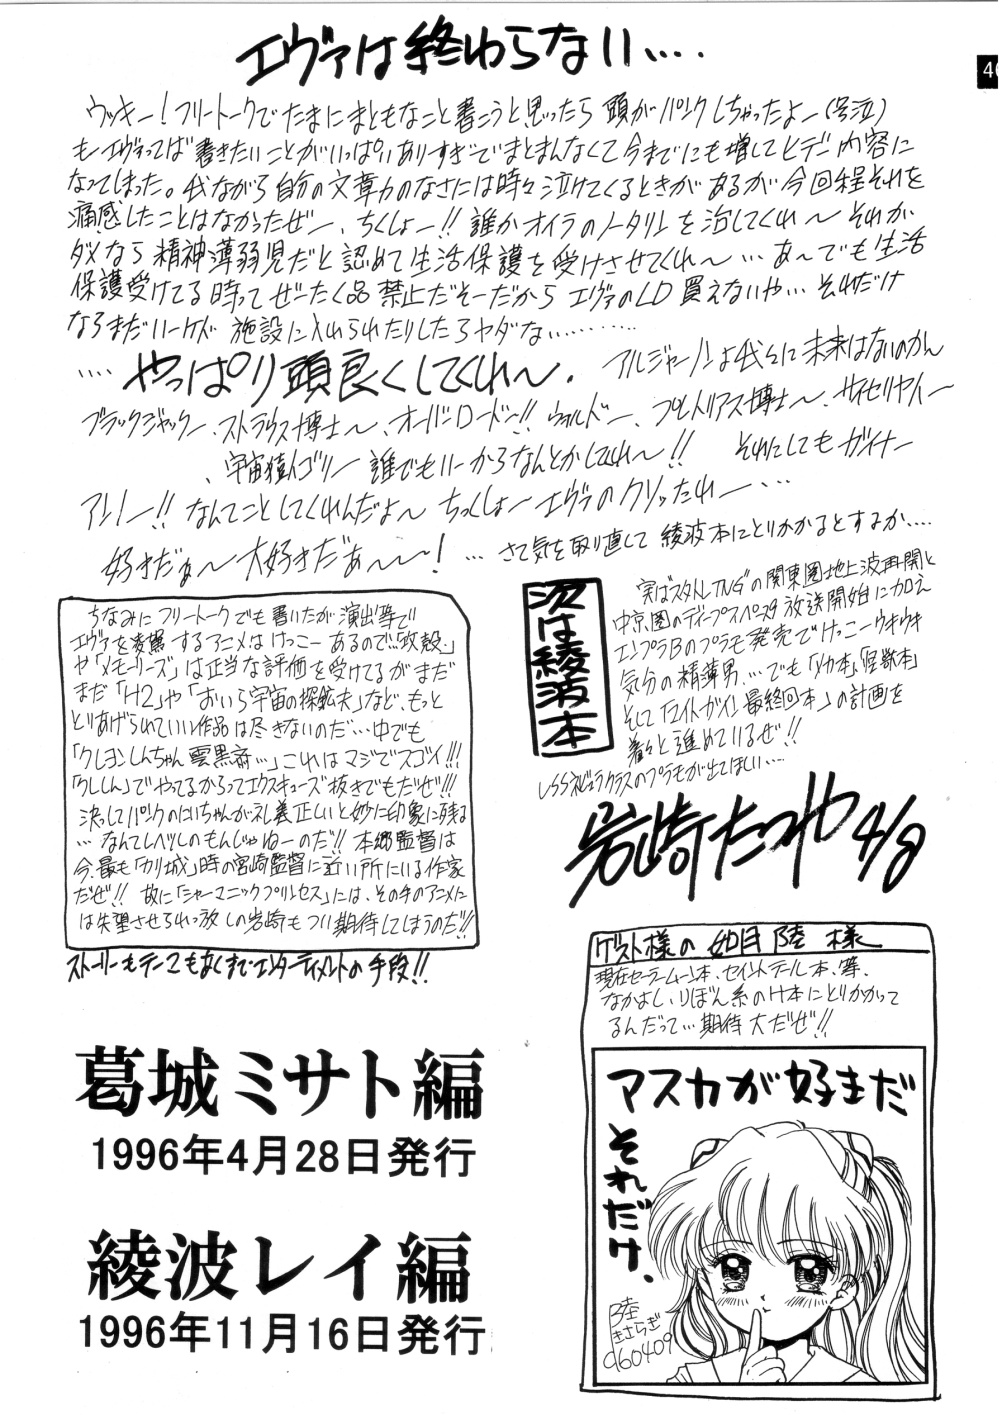 46
エヴァは終わらない….
ウッキー!フリートークでたまにまともなこと書こうと思ったら頭がパンクしちゃったよー(号泣)
もーエヴァってば書きたいことがいっぱいありすぎてまとまんなくて今までにも増してヒデー内容に
なってしまった。我ながら自分の文章力のなさには時々泣けてくるときがあるが今回程それを
痛感したことはなかったぜー、ちくしょー!!誰かオイラのノータリンを治してくれ〜それが
ダメなら精神薄弱児だと認めて生活保護を受けさせてくれ〜…あ〜でも生活
保護受けてる時ってぜーたく品禁止だそーだからエヴァのLD買えないや…それだけ
ならまだいーケド施設に入れられたりしたらヤダな…………
….やっぱり頭良くしてくれ〜.
アルジャーノンよ我々に未来はないのかん
ブラックジャックー、ストラウス博士〜、オーバーロードー!!ウォルドー、
、宇宙猿人ゴリー誰でもいーからなんとかしてくれ〜!!
それにしてもガイナー
アンノー!!なんてことしてくれんだよ〜ちっくしょーエヴァのクソッたれー…
好きだぁ〜大好きだぁ〜〜!
…さて気を取り直して綾波本にとりかかるとするか….
次は綾波本
実はスタトレTNGの関東圏地上波再開と
中京圏のディープスペース9放送開始に加え
エンプラBのプラモ発売でけっこーウキウキ
気分の精薄男…でも「メカ本」「怪獣本」
そして「マイトガイン最終回本」の計画を
着々と進めているぜ!!
LSSネビュラクラスのプラモが出てほしい….
岩崎たつや4/8
ちなみにフリートークでも書いたが演出等で
エヴァを凌駕するアニメはけっこーあるので「攻殻.」
や「メモリーズ」は正当な評価を受けてるがまだ
まだ「H2」や「おいら宇宙の探鉱夫」など、もっと
とりあげられていい作品は尽きないのだ…中でも
「クレヨンしんちゃん雲黒斎…」これはマジでスゴイ!!!
「クレしん」でやってるからってエクスキューズ抜きでもだぜ!!!
決してパンクのにいちゃんが礼義正しいと妙に印象に残る
…なんてレベルのもんじゃねーのだ!!本郷監督は
今、最も「カリ城」時の宮崎監督に近い所にいる作家
だぜ!!故に「シャーマニックプリンセス」には、その手のアニメに
は失望させられっ放しの岩崎もつい期待してしまうのだ!!
ストーリーもテーマもなくまでエンターティメントの手段!!
ゲスト様の如月陸様
現在セーラームーン本、セイントテール本、等、
なかよし、りぼん系のH本にとりかかって
るんだって…期待大だぜ!!
マスカが好きだ
それだけ.
陸
きさらぎ
960409
葛城ミサト編
1996年4月28日発行
綾波レイ編
1996年11月16日発行